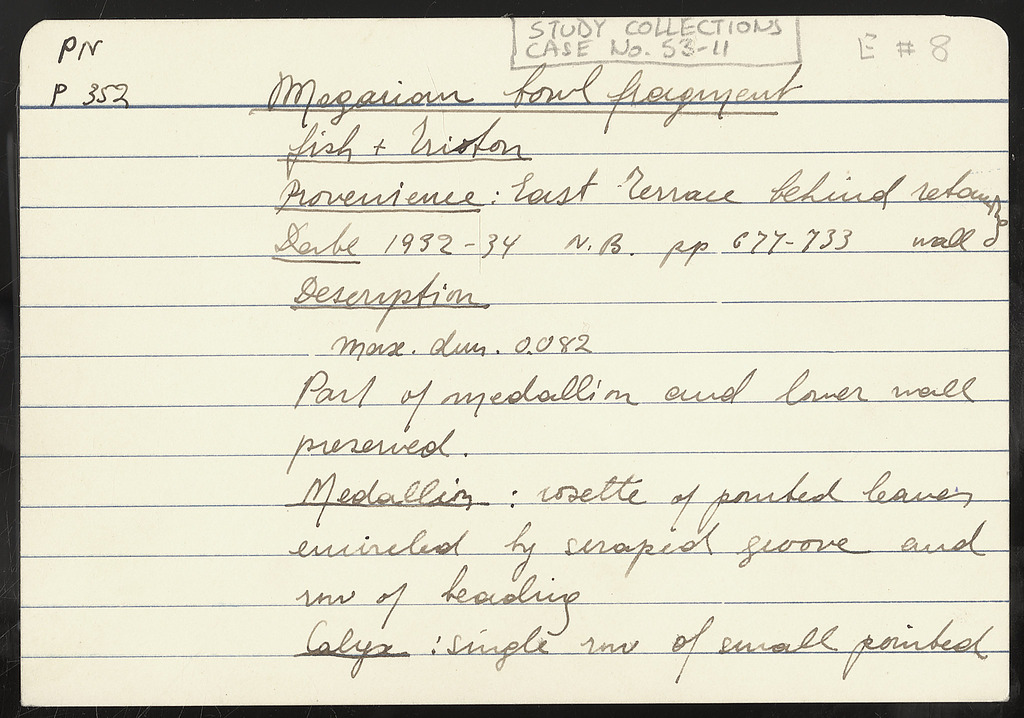 PN
STUDY COLLECTIONS
CASE No. 53-11
E # 8
P 352
Megarian bowl fragment
fish + Triton
Provenience: East Terrace behind retaining
wall
Date 1932-34 N.B. pp 677-733
Description
max. dim. 0.082
Part of medallion and lower wall
preserved.
Medallion : rosette of pointed leaves
encircled by scraped groove and
row of beading
Calyx : single row of small pointed